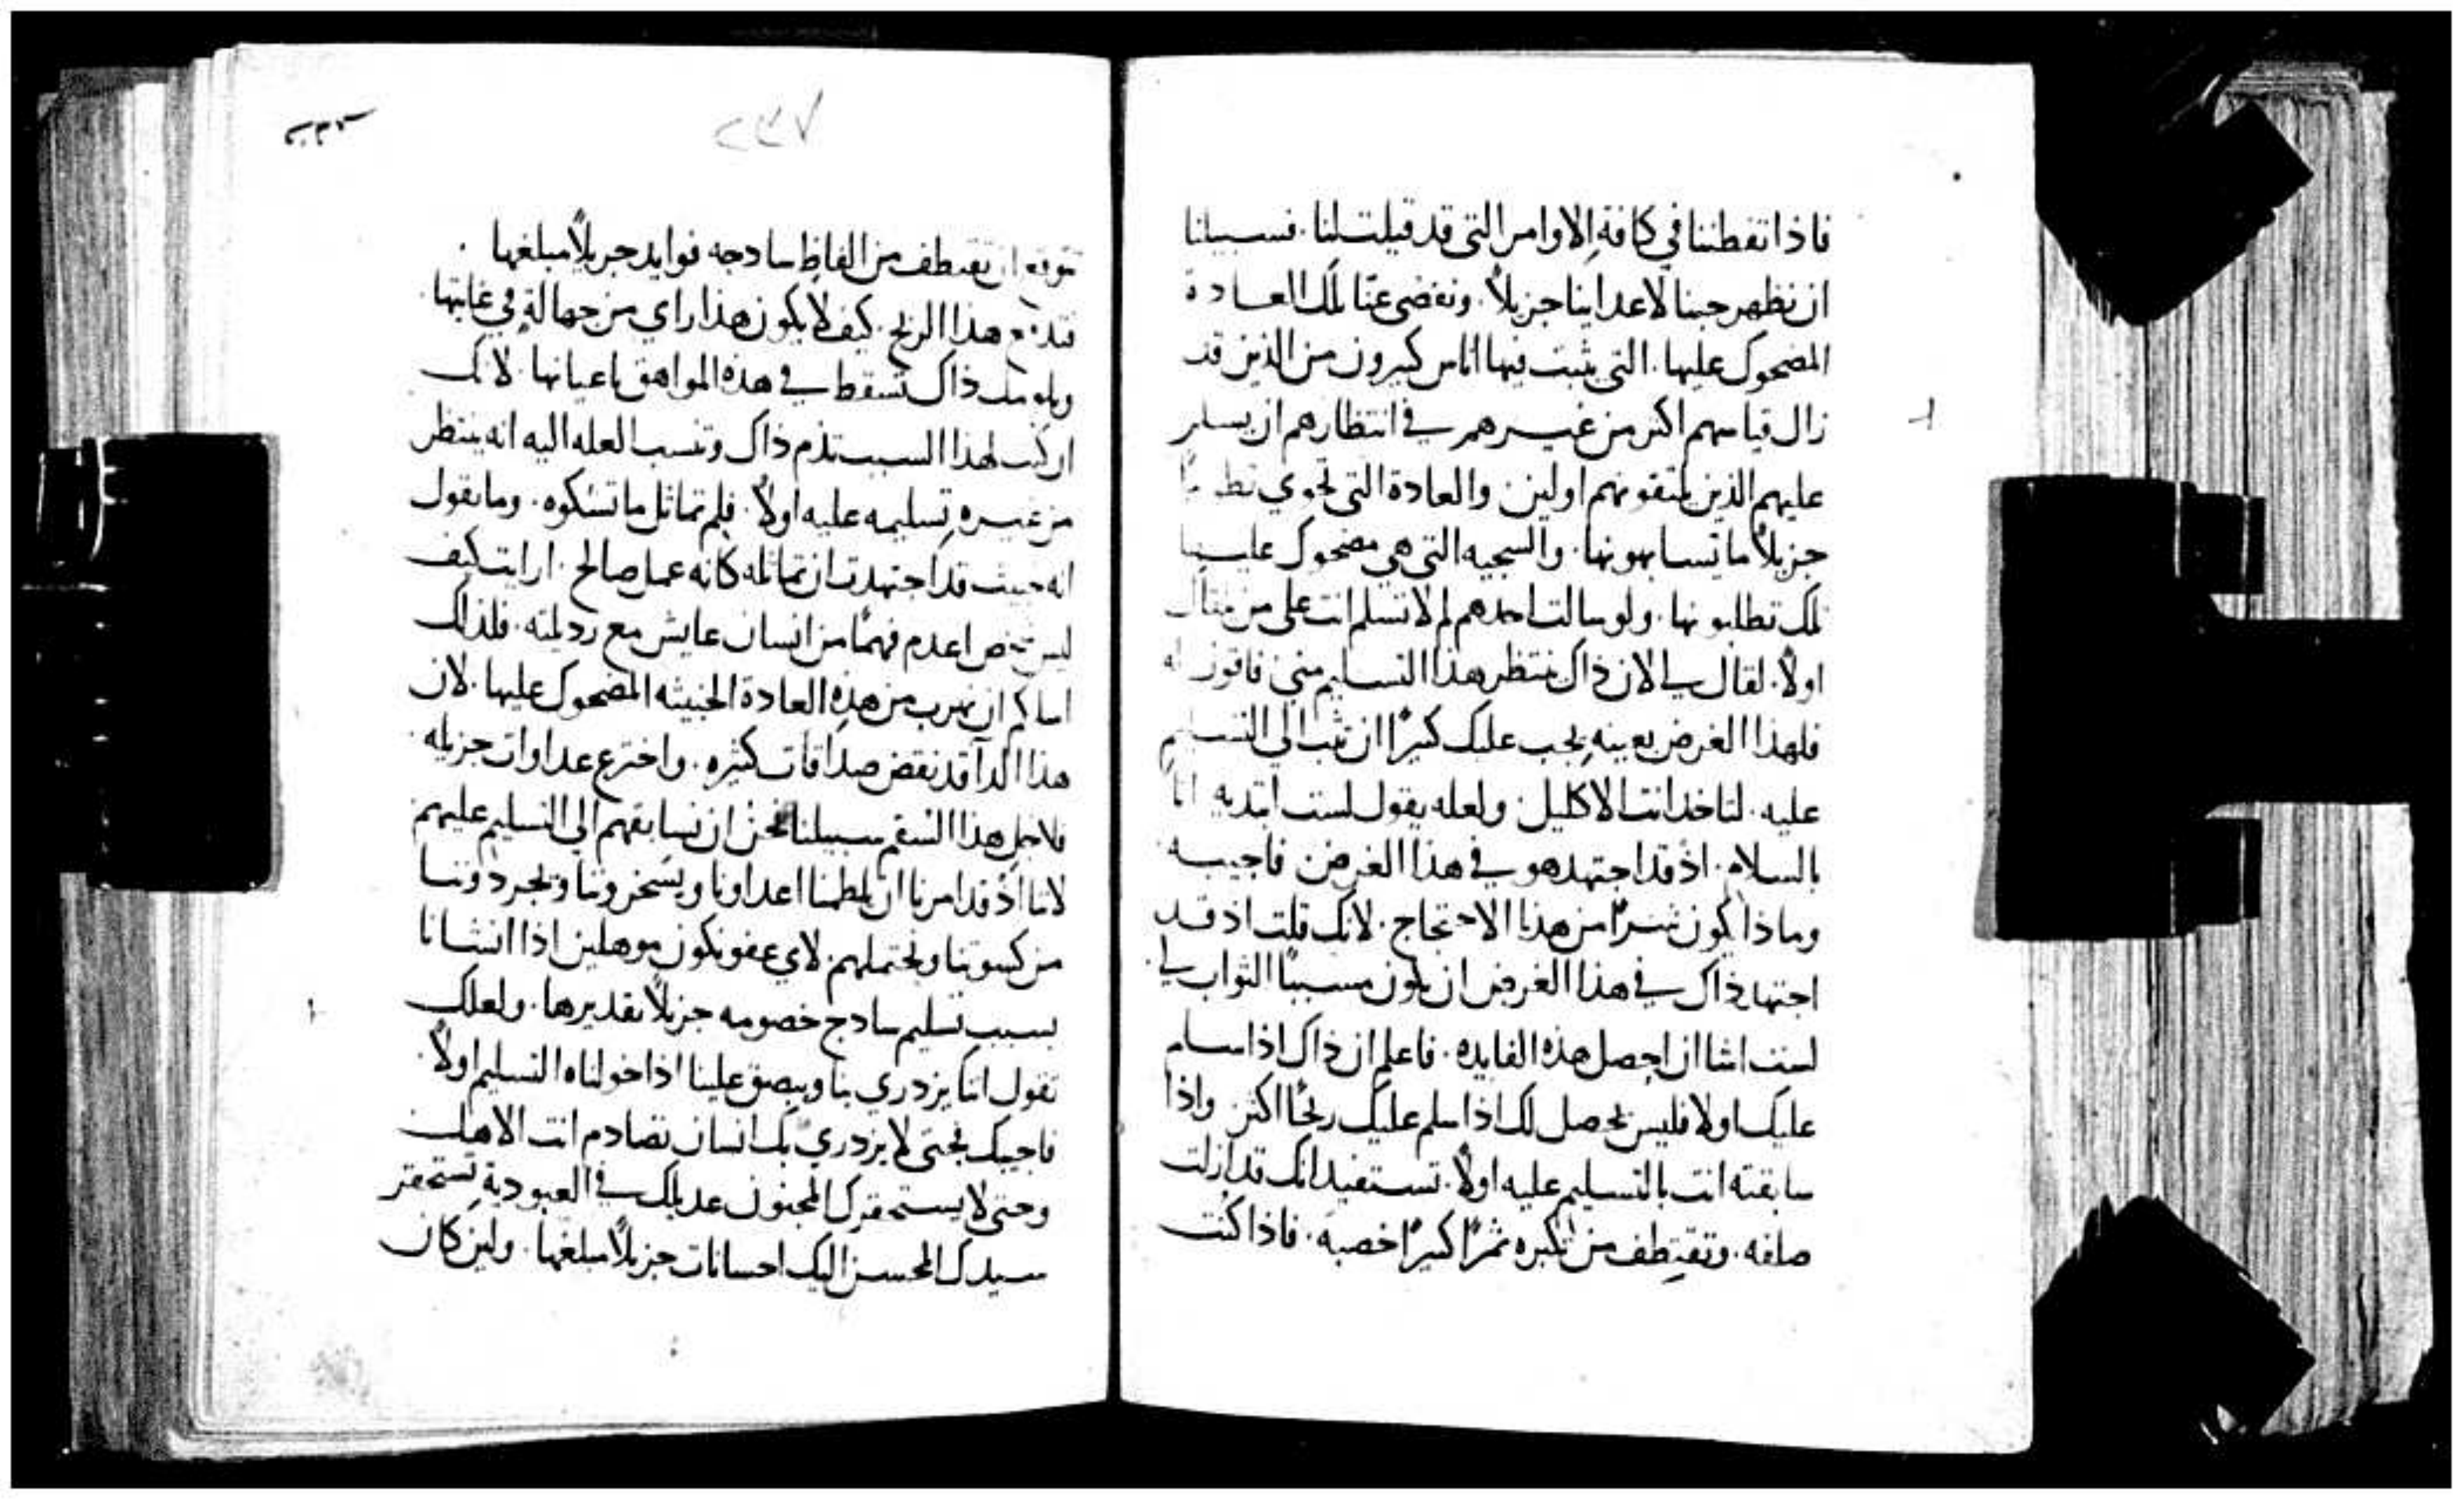 فاذا تفطننا في كافة الاوامر التي قد قيلت لنا. فسبيلنا
ان نظهر حبنا لاعداينا جزيلاً. ونفضي عنّا تلك العادة
المضحوك عليها. التي يثبت فيها اناس كثيرون من الذين قد
زال قياسهم اكثر من غيرهم في انتظارهم ان يسلم
عليهم الذين يلتقونهم اولين. والعادة التي تحوي
جزيلاً ما تسابهونها. والسجيه التي هي مضحوك عليها
تلك تطلبونها. ولو سالت احدهم لم لا تسلم انت على من
اولاً. لقال لي لان ذاك ينتظر هذا التسليم مني فاقول له
فلهذا الغرض بعينه يجب عليك كثيرًا ان تثب الي التسليم
عليه. لتاخذ انت الاكليل. ولعله يقول لست ابتديه انا
بالسلام. اذ قد اجتهد هو في هذا الغرض فاجيبه
وماذا يكون شرًا من هذا الاحتجاج. لانك قلت اذ قد
اجتهد ذاك في هذا الغرض ان يكون مسببًا الثواب لي.
لست اشا ان احصل هذه الفايده. فاعلم ان ذاك اذا سلم
عليك اولا فليس يحصل لك اذا سلم عليك ربحًا اكثر. واذا
سابقته انت بالتسليم عليه اولاً. تستفيد انك قد ازلت
صلفه. وتقتطف من تكبره ثمرًا كثيرًا خصبه. فاذا كنت
٢٣٧
ان تقتطف من الفاظ سادجه فوايد جزيلاً مبلغها.
هذا الربح. كيف لا يكون هذا راي من جهالة في غايتها.
ذاك تسقط في هذه المواهق باعيانها. لانك
ان كنت لهذا السبب تذم ذاك وتنسب العله اليه انه ينتظر
من غيره تسليمه عليه اولاً. فلم تماثل ما تشكوه. وما تقول
انه خبيث قد اجتهدت ان تماثله كانه عمل صالح. ارايت كيف
ليس شخص اعدم فهمًا من انسان عايش مع رذيلته. فلذلك
اسالكم ان نهرب من هذه العادة الخبيثه المضحوك عليها. لان
هذا الدآ قد نقض صداقات كثيره. واخترع عداوات جزيله.
فلاجل هذا السقم سبيلنا نحن ان نسابقهم الي التسليم عليهم
لاننا اذ قد امرنا ان يلطمنا اعداونا ويسخرونا ويجردونا
من كسوتنا ونحتملهم. لاي عفو نكون موهلين اذا انشانا
بسبب تسليم سادج خصومه جزيلاً تقديرها. ولعلك
تقول اننا يزدري بنا ويبصق علينا اذا خولناه التسليم اولاً.
فاجيبك فحتى لا يزدري بك انسان تصادم انت الاهك
وحتى لا يستحقرك المجنون عديلك في العبودية تستحقر
سيدك المحسن اليك احسانات جزيلاً مبلغها. ولين كان